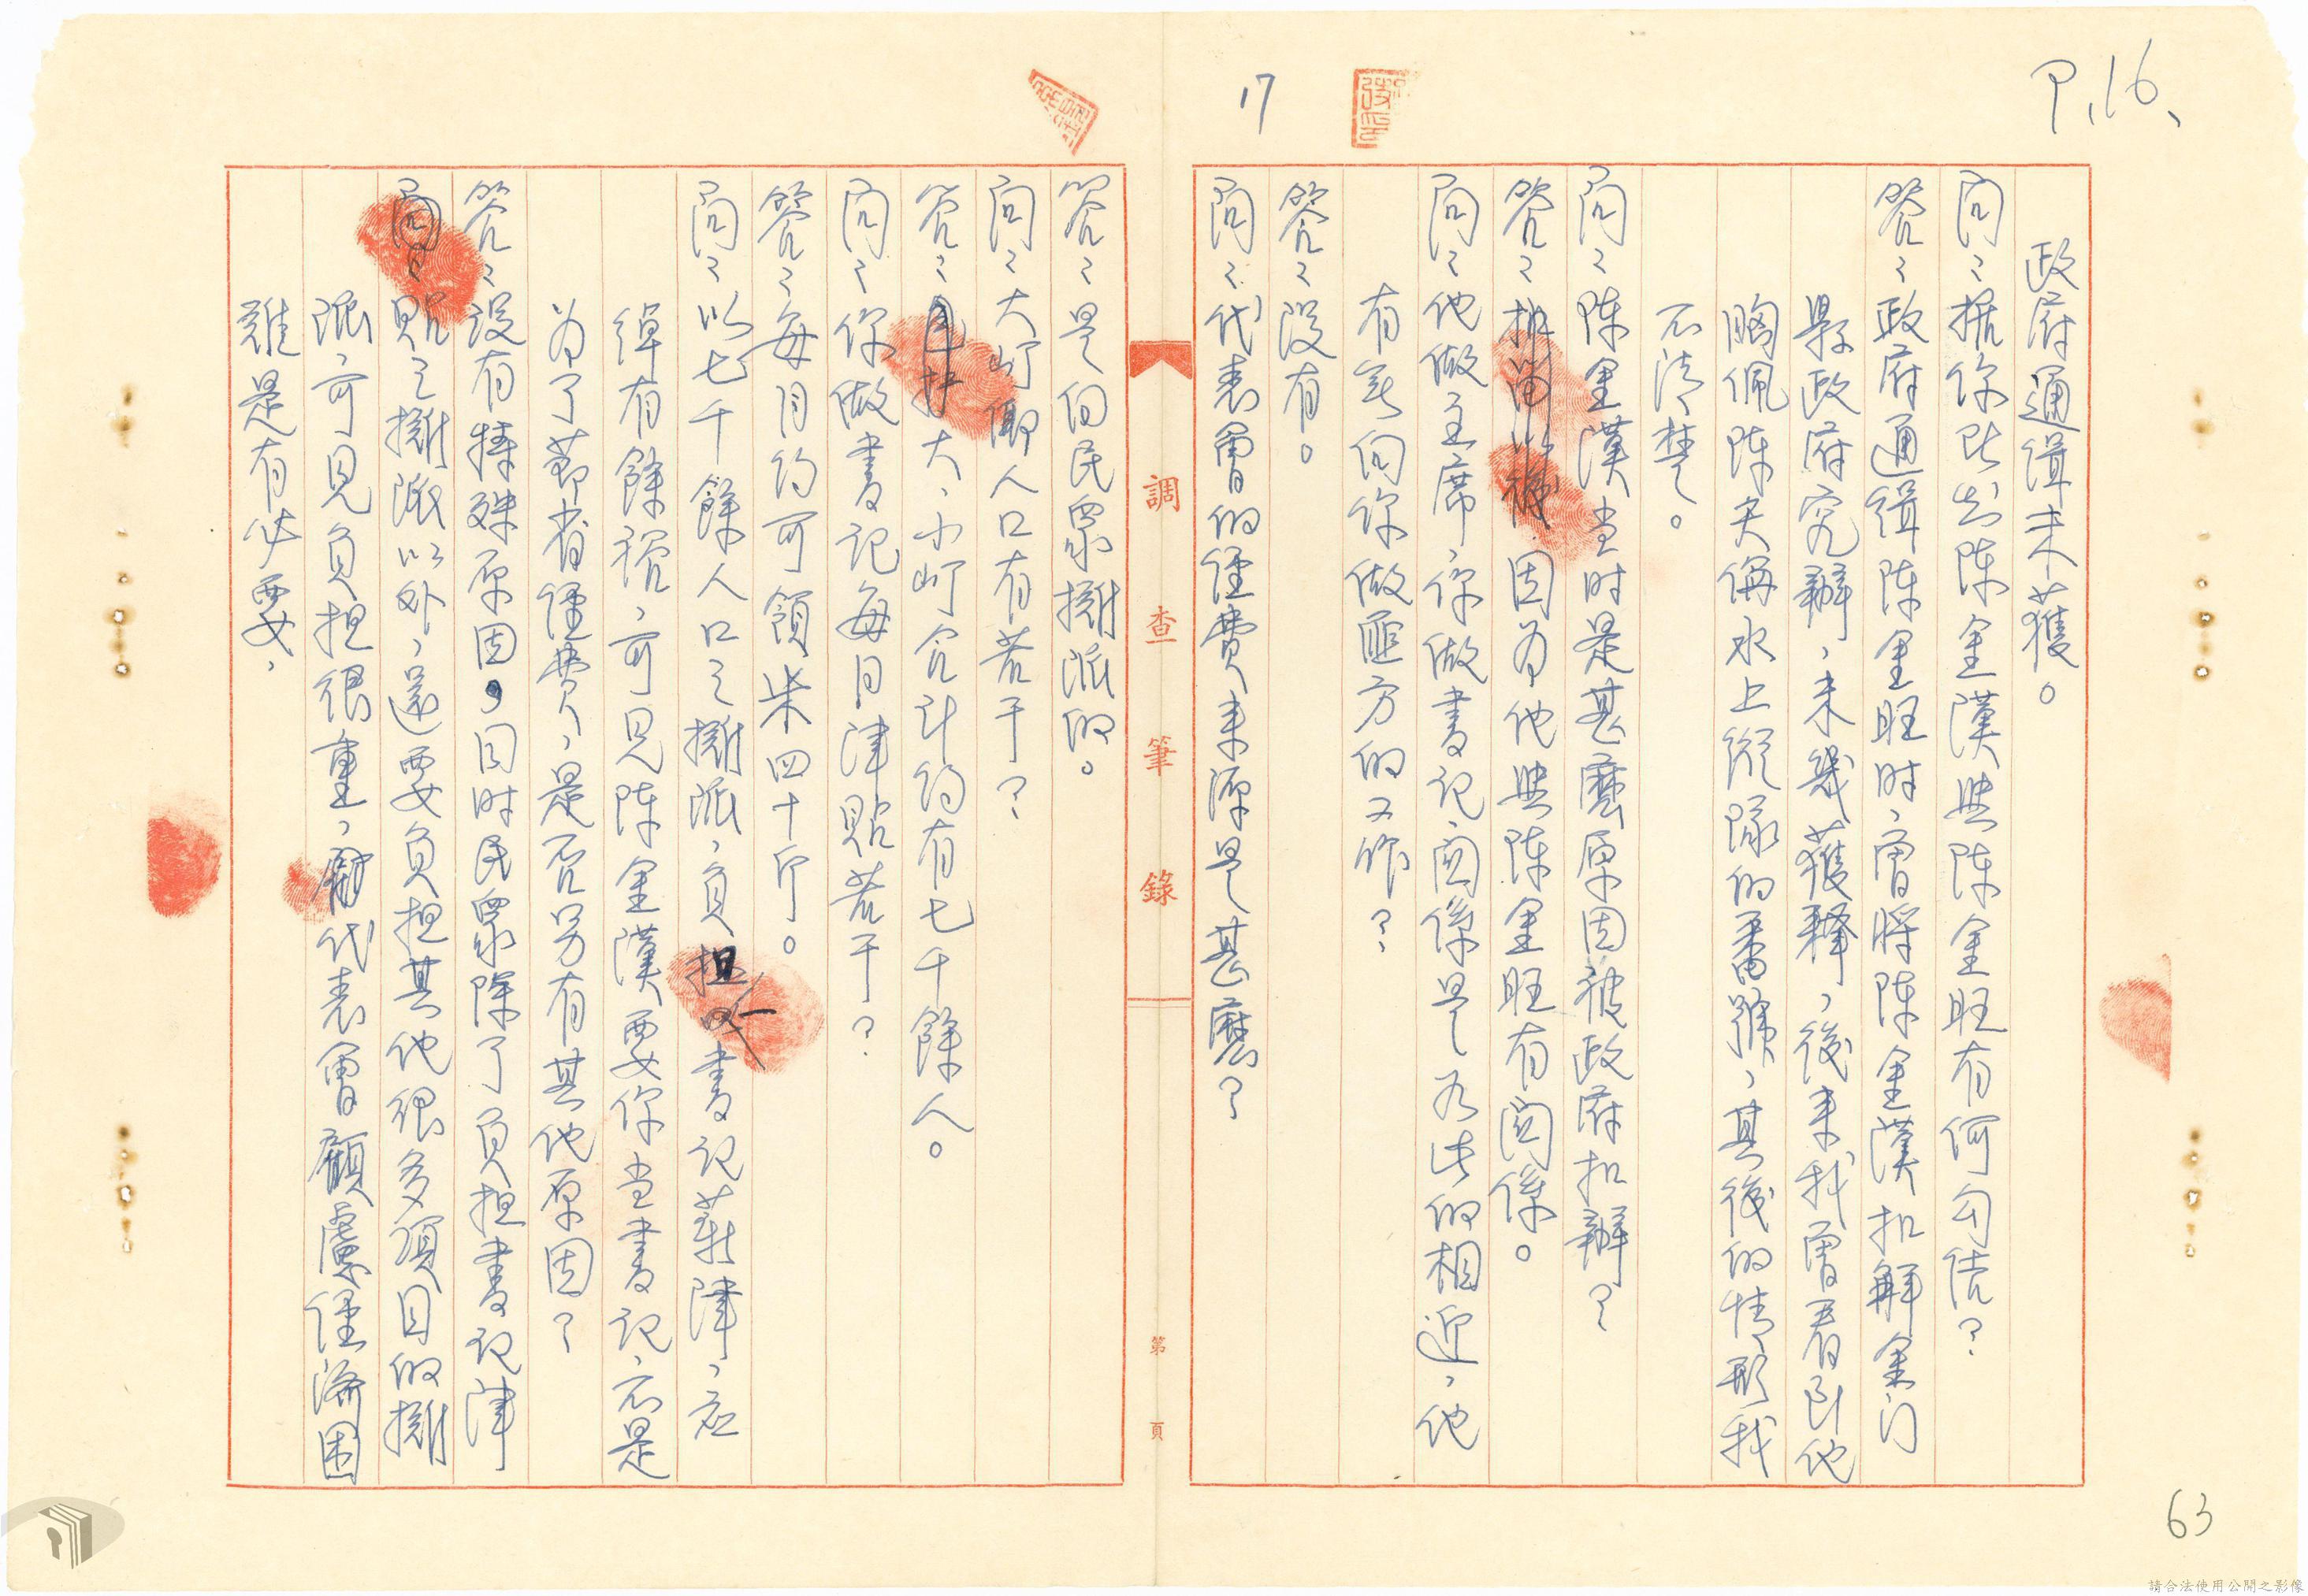 P.16、
政府通緝未獲。
問：据你所知陈金漢與陈金旺有何勾結？
答：政府通緝陈金旺时，曾將陈金漢扣解金门
县政府究辦，未幾獲釋，後来我曾看到他
胸佩陈天倫水上縱隊的番號，其後的情形我
不清楚。
問：陈金漢当时是甚麼原因被政府扣辦？
答：因为他與陈金旺有関係。
問：他做主席，你做書記，関係是如此的相近，他
有無向你做匪方的工作？
答：没有。
問：代表會的經費来源是甚麼？
17
答：是向民眾攤派的。
問：大嶝鄉人口有若干？
答：大、小嶝合計約有七千餘人。
問：你做書記每月津貼若干？
答：每月約可領米四十斤。
問：以七千餘人口之攤派，負担書記薪津，应
綽有餘裕，可見陈金漢要你当書記，不是
为了節省經費，是否另有其他原因？
答：没有特殊原因，同时民眾除了負担書記津
貼之攤派以外，還要負担其他很多項目的攤
派，可見負担很重，代表會顧慮經濟困
難是有必要，
調查筆錄
第 頁
63
請合法使用公開之影像